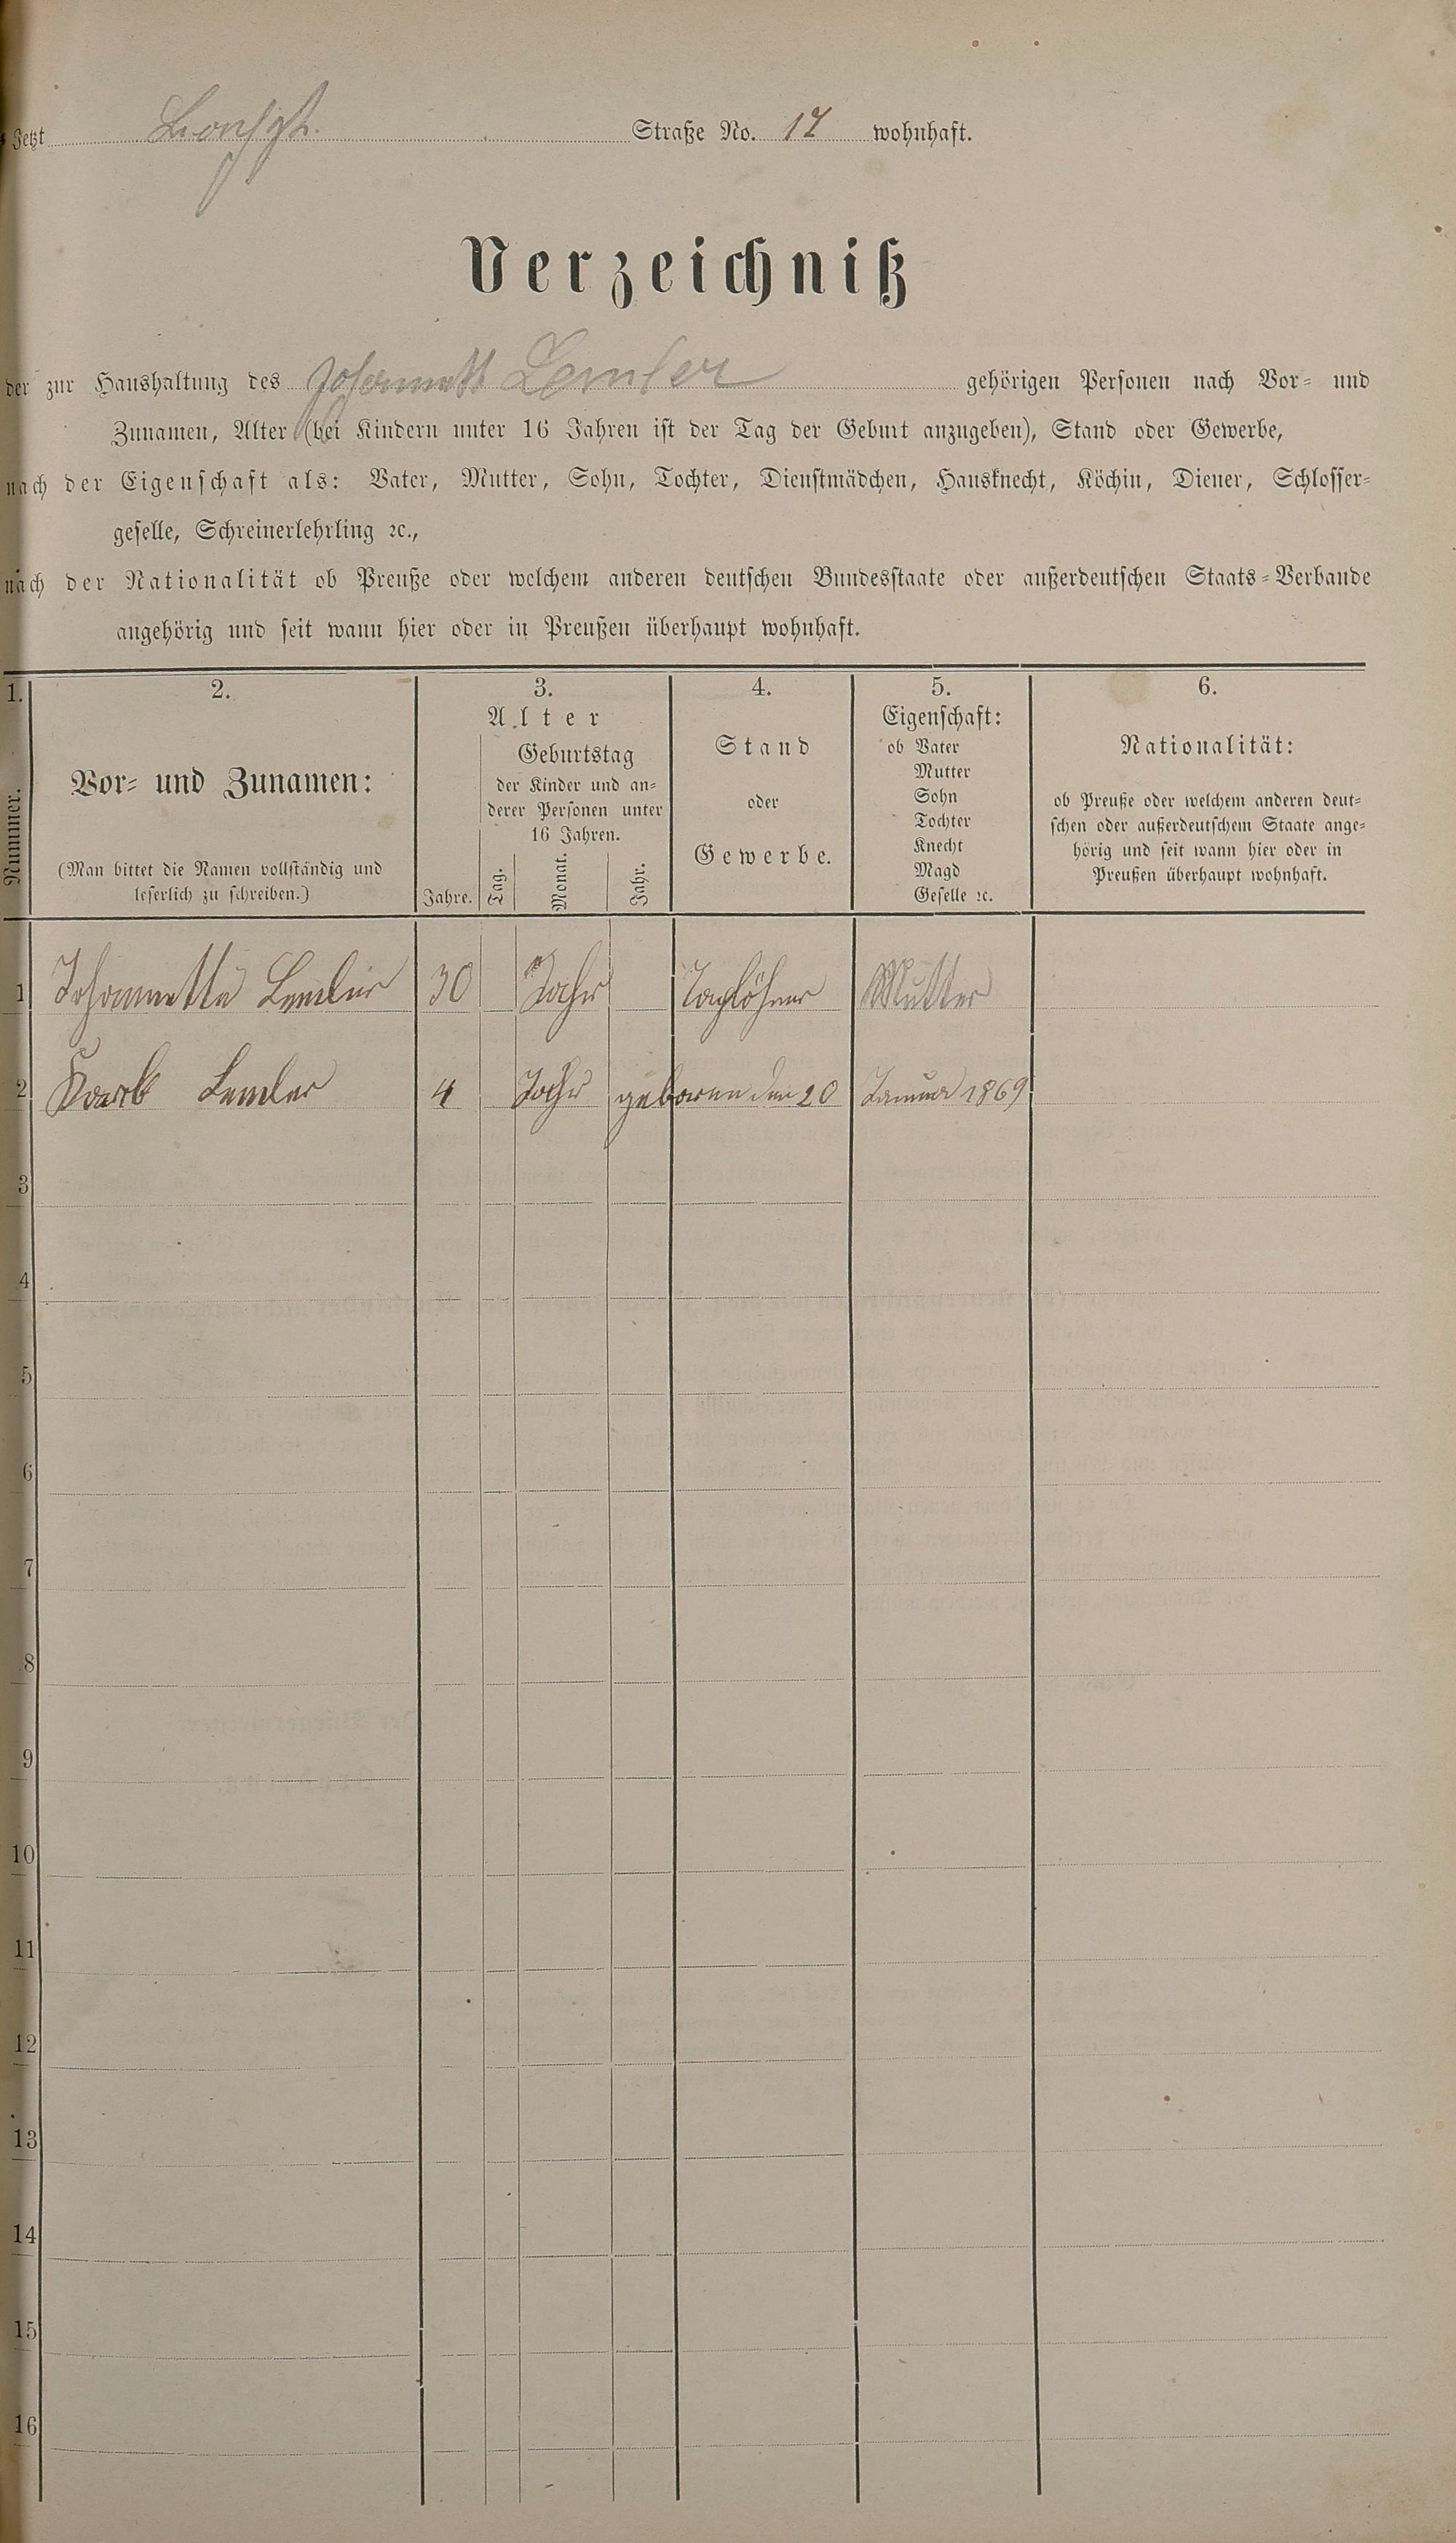 Jetzt Straße No. 17 wohnhaft.
Verzeichniß
der zur Haushaltung des Johannette Lemler gehörigen Personen nach Vor- und
Zunamen, Alter (bei Kindern unter 16 Jahren ist der Tag der Geburt anzugeben), Stand oder Gewerbe,
nach der Eigenschaft als: Vater, Mutter, Sohn, Tochter, Dienstmädchen, Hausknecht, Köchin, Diener, Schlosser-
geselle, Schreinerlehrling ꝛc.,
nach der Nationalität ob Preuße oder welchem anderen deutschen Bundesstaate oder außerdeutschen Staats-Verbande
angehörig und seit wann hier oder in Preußen überhaupt wohnhaft.
1.
Nummer.
2.
Vor- und Zunamen:
(Man bittet die Namen vollständig und
leserlich zu schreiben.)
3.
Alter
Jahre.
Geburtstag
der Kinder und an-
derer Personen unter
16 Jahren.
Tag.
Monat.
Jahr.
4.
Stand
oder
Gewerbe.
5.
Eigenschaft:
ob Vater
Mutter
Sohn
Tochter
Knecht
Magd
Geselle ꝛc.
6.
Nationalität:
ob Preuße oder welchem anderen deut-
schen oder außerdeutschem Staate ange-
hörig und seit wann hier oder in
Preußen überhaupt wohnhaft.
1 Johannette Lemler 30 Jahr Taglöhner Mutter
2 Karl Lemler 4 Jahr geboren den 20 Januar 1869
3
4
5
6
7
8
9
10
11
12
13
14
15
16